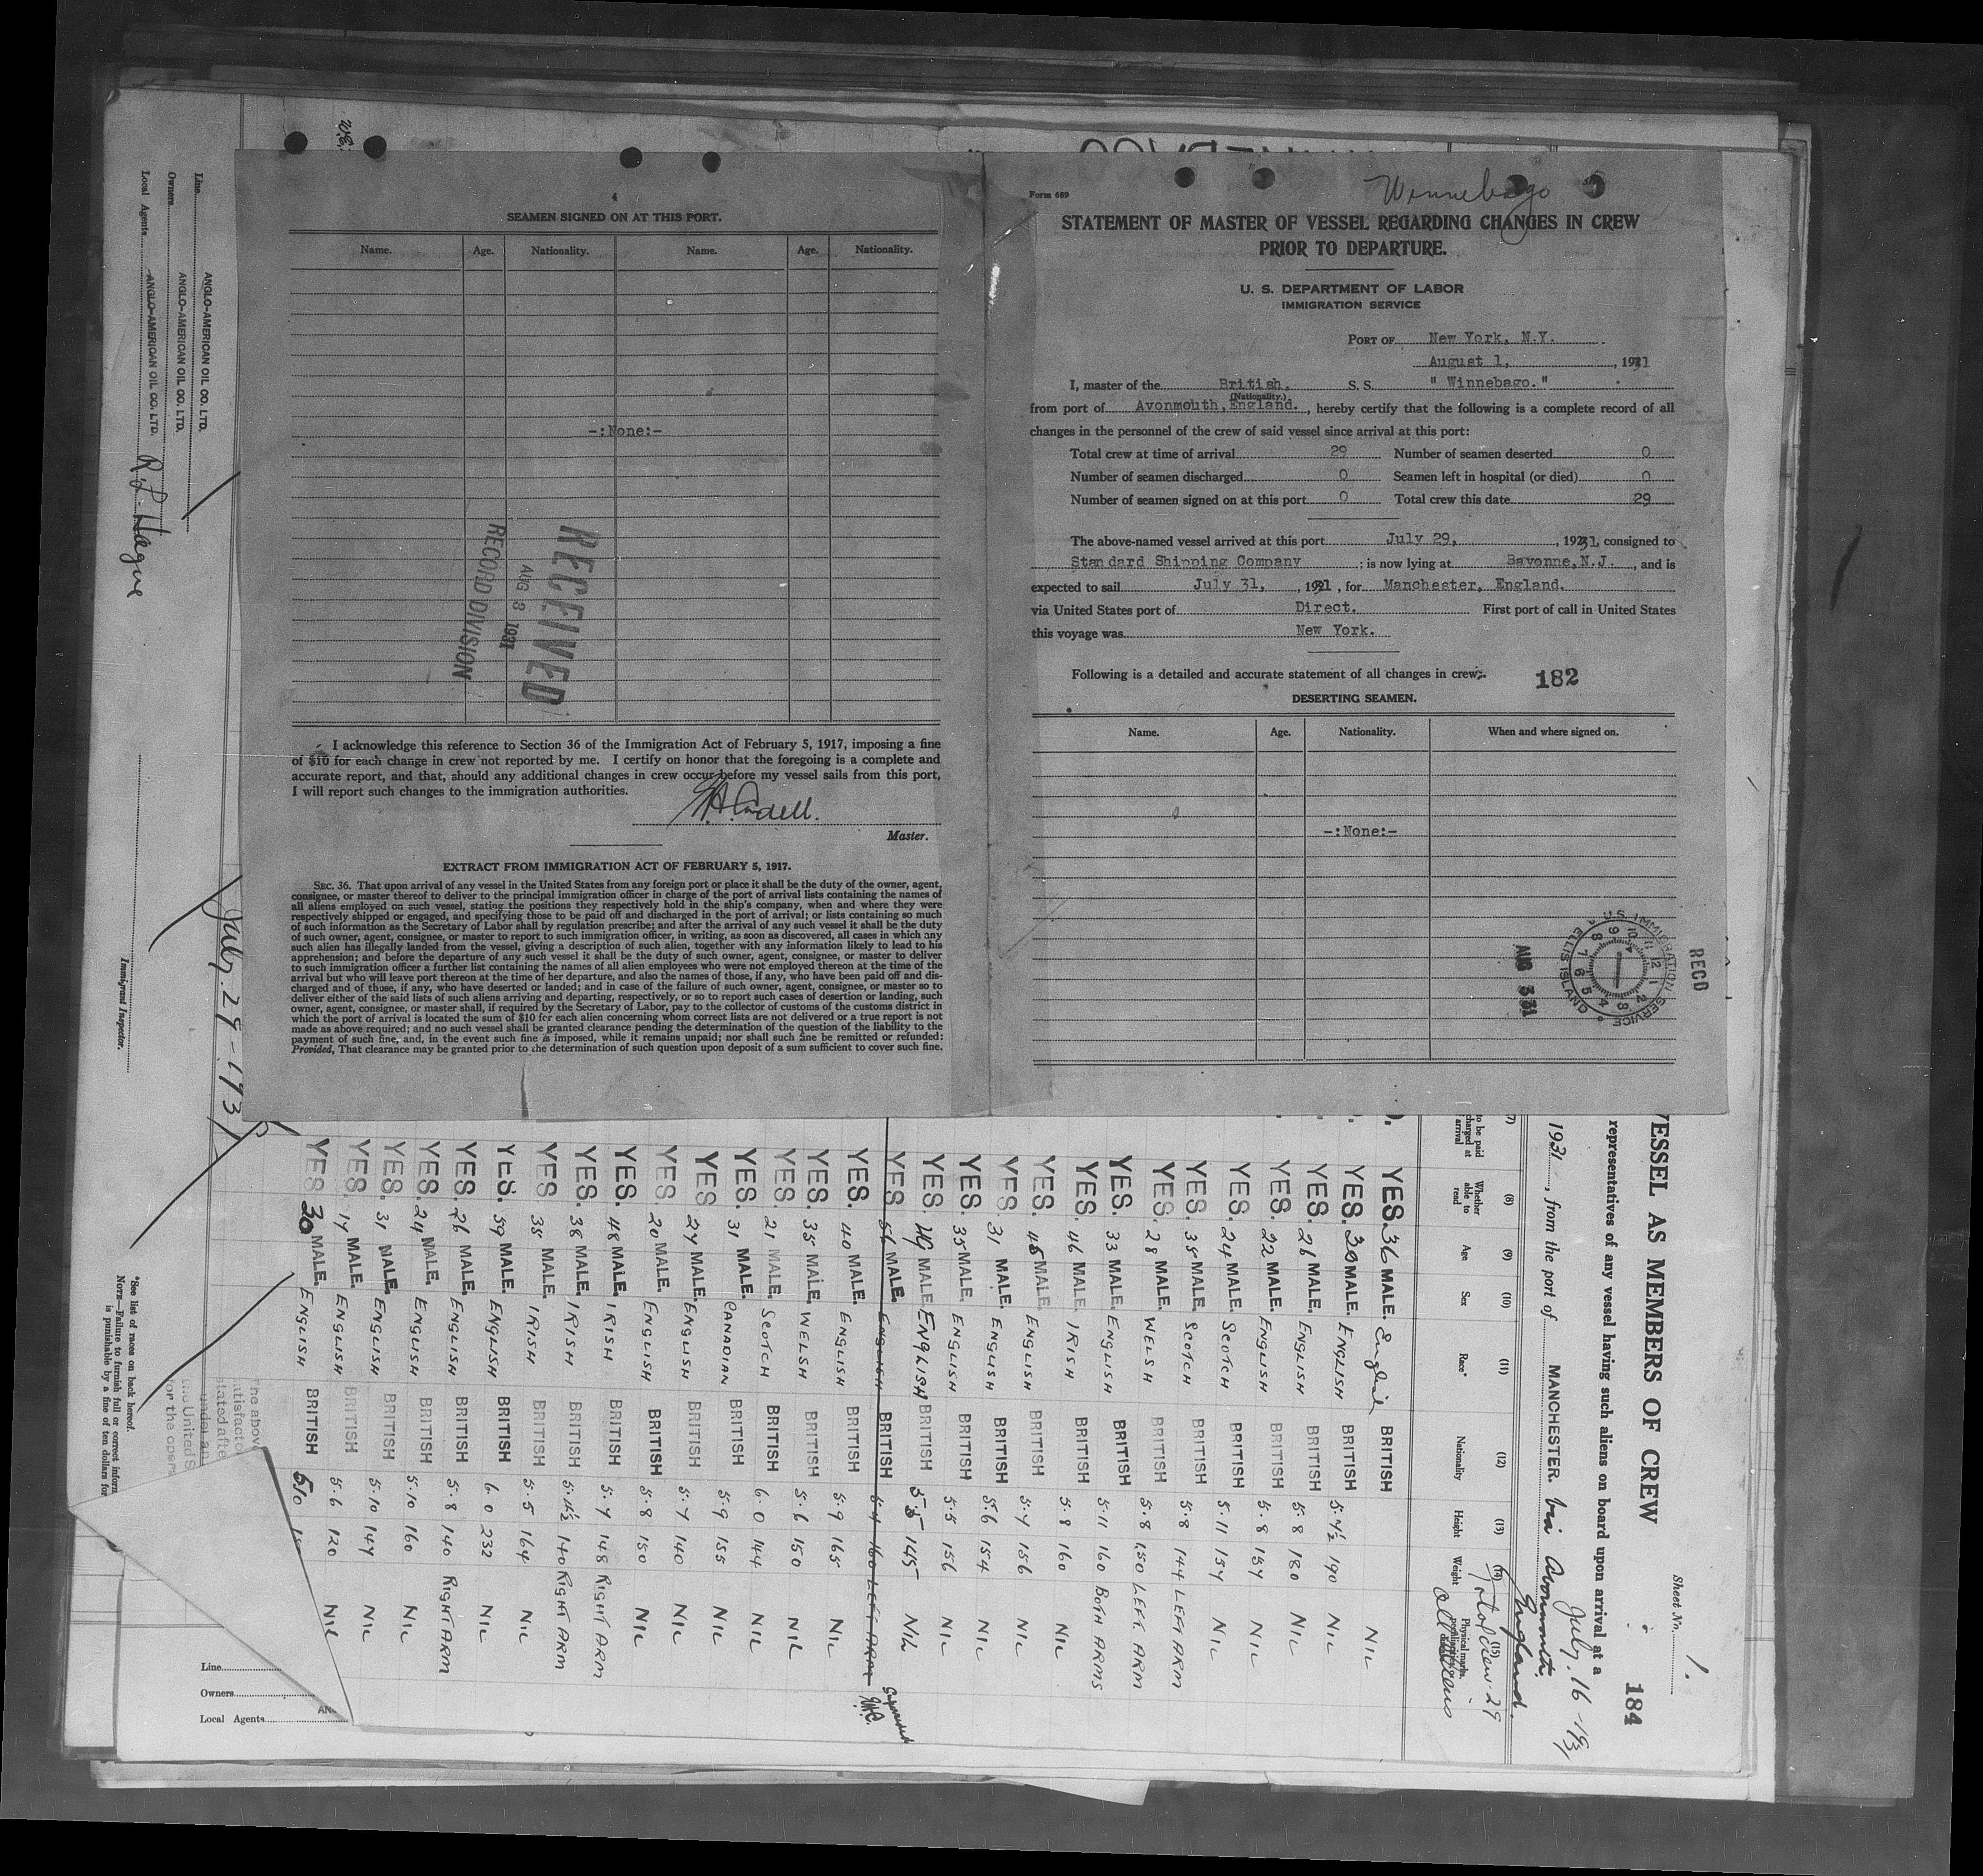 4
SEAMEN SIGNED ON AT THIS PORT.
Name. Age. Nationality. Name. Age. Nationality.
-:None:-
RECEIVED
AUG 8 1931
RECORD DIVISION
I acknowledge this reference to Section 36 of the Immigration Act of February 5, 1917, imposing a fine
of $10 for each change in crew not reported by me. I certify on honor that the foregoing is a complete and
accurate report, and that, should any additional changes in crew occur before my vessel sails from this port,
I will report such changes to the immigration authorities.
Master.
EXTRACT FROM IMMIGRATION ACT OF FEBRUARY 5, 1917.
SEC. 36. That upon arrival of any vessel in the United States from any foreign port or place it shall be the duty of the owner, agent,
consignee, or master thereof to deliver to the principal immigration officer in charge of the port of arrival lists containing the names of
all aliens employed on such vessel, stating the positions they respectively hold in the ship's company, when and where they were
respectively shipped or engaged, and specifying those to be paid off and discharged in the port of arrival; or lists containing so much
of such information as the Secretary of Labor shall by regulation prescribe; and after the arrival of any such vessel it shall be the duty
of such owner, agent, consignee, or master to report to such immigration officer, in writing, as soon as discovered, all cases in which any
such alien has illegally landed from the vessel, giving a description of such alien, together with any information likely to lead to his
apprehension; and before the departure of any such vessel it shall be the duty of such owner, agent, consignee, or master to deliver
to such immigration officer a further list containing the names of all alien employees who were not employed thereon at the time of the
arrival but who will leave port thereon at the time of her departure, and also the names of those, if any, who have been paid off and dis-
charged and of those, if any, who have deserted or landed; and in case of the failure of such owner, agent, consignee, or master so to
deliver either of the said lists of such aliens arriving and departing, respectively, or so to report such cases of desertion or landing, such
owner, agent, consignee, or master shall, if required by the Secretary of Labor, pay to the collector of customs of the customs district in
which the port of arrival is located the sum of $10 for each alien concerning whom correct lists are not delivered or a true report is not
made as above required; and no such vessel shall be granted clearance pending the determination of the question of the liability to the
payment of such fine, and, in the event such fine is imposed, while it remains unpaid; nor shall such fine be remitted or refunded:
Provided, That clearance may be granted prior to the determination of such question upon deposit of a sum sufficient to cover such fine.
Form 689
Winnebago
STATEMENT OF MASTER OF VESSEL REGARDING CHANGES IN CREW
PRIOR TO DEPARTURE.
U. S. DEPARTMENT OF LABOR
IMMIGRATION SERVICE
PORT OF New York, N.Y.
August 1, , 1931
I, master of the British, S. S. " Winnebago. "
(Nationality.)
from port of Avonmouth, England. , hereby certify that the following is a complete record of all
changes in the personnel of the crew of said vessel since arrival at this port:
Total crew at time of arrival 29 Number of seamen deserted 0
Number of seamen discharged 0 Seamen left in hospital (or died) 0
Number of seamen signed on at this port 0 Total crew this date 29
The above-named vessel arrived at this port July 29, , 1931, consigned to
Standard Shipping Company ; is now lying at Bayonne, N.J. , and is
expected to sail July 31, , 1931 , for Manchester, England.
via United States port of Direct. First port of call in United States
this voyage was New York.
Following is a detailed and accurate statement of all changes in crew:
182
DESERTING SEAMEN.
Name. Age. Nationality. When and where signed on.
-:None:-
RECD
U.S. IMMIGRATION SERVICE
ELLIS ISLAND
AUG 3 31
Sheet No. 1.
184
VESSEL AS MEMBERS OF CREW
representatives of any vessel having such aliens on board upon arrival at a
July. 16-1931
1931, from the port of MANCHESTER. via Avonmouth,
England.
(8) (9) (10) (11) (12) (13) (14) (15)
to be paid
charged at
arrival
Whether
able to
read
Age Sex Race* Nationality Height Weight
Total crew 29
YES. 36 MALE. English BRITISH NIL
YES. 30 MALE. ENGLISH BRITISH 5.4½ 190 NIL
YES. 26 MALE. ENGLISH BRITISH 5.8 180 NIL
YES. 22 MALE. ENGLISH BRITISH 5.8 154 NIL
YES. 24 MALE. SCOTCH BRITISH 5.11 154 NIL
YES. 35 MALE. SCOTCH BRITISH 5.8 144 LEFT ARM
YES. 28 MALE. WELSH BRITISH 5.8 150 LEFT ARM
YES. 33 MALE. ENGLISH BRITISH 5.11 160 BOTH ARMS
YES. 46 MALE. IRISH BRITISH 5.8 160 NIL
YES. 45 MALE. ENGLISH BRITISH 5.4 156 NIL
YES. 31 MALE. ENGLISH BRITISH 5.6 154 NIL
YES. 35 MALE. ENGLISH BRITISH 5.5 156 NIL
YES. 49 MALE. ENGLISH BRITISH 5.5 145 NIL
YES. 56 MALE. ENGLISH BRITISH 5.4 160 LEFT ARM
YES. 40 MALE. ENGLISH BRITISH 5.9 165 NIL
YES. 35 MALE. WELSH BRITISH 5.6 150 NIL
YES. 21 MALE. SCOTCH BRITISH 6.0 144 NIL
YES. 31 MALE. CANADIAN BRITISH 5.9 155 NIL
YES. 27 MALE. ENGLISH BRITISH 5.7 140 NIL
YES. 20 MALE. ENGLISH BRITISH 5.8 150 NIL
YES. 48 MALE. IRISH BRITISH 5.7 148 RIGHT ARM
YES. 38 MALE. IRISH BRITISH 140 RIGHT ARM
YES. 35 MALE. IRISH BRITISH 5.5 164 NIL
YES. 59 MALE. ENGLISH BRITISH 6.0 232 NIL
YES. 26 MALE. ENGLISH BRITISH 5.8 140 RIGHT ARM
YES. 24 MALE. ENGLISH BRITISH 5.10 160 NIL
YES. 31 MALE. ENGLISH BRITISH 5.10 147 NIL
YES. 17 MALE. ENGLISH BRITISH 5.6 120 NIL
YES. 30 MALE. ENGLISH BRITISH 5.10
July. 29-1931
Line ANGLO-AMERICAN OIL CO. LTD.
Owners ANGLO-AMERICAN OIL CO. LTD.
Local Agents ANGLO-AMERICAN OIL CO. LTD. R. L. Hague
Immigrant Inspector.
*See list of races on back hereof.
NOTE—Failure to furnish full or correct inform
is punishable by a fine of ten dollars for
The above
Line
Owners
Local Agents